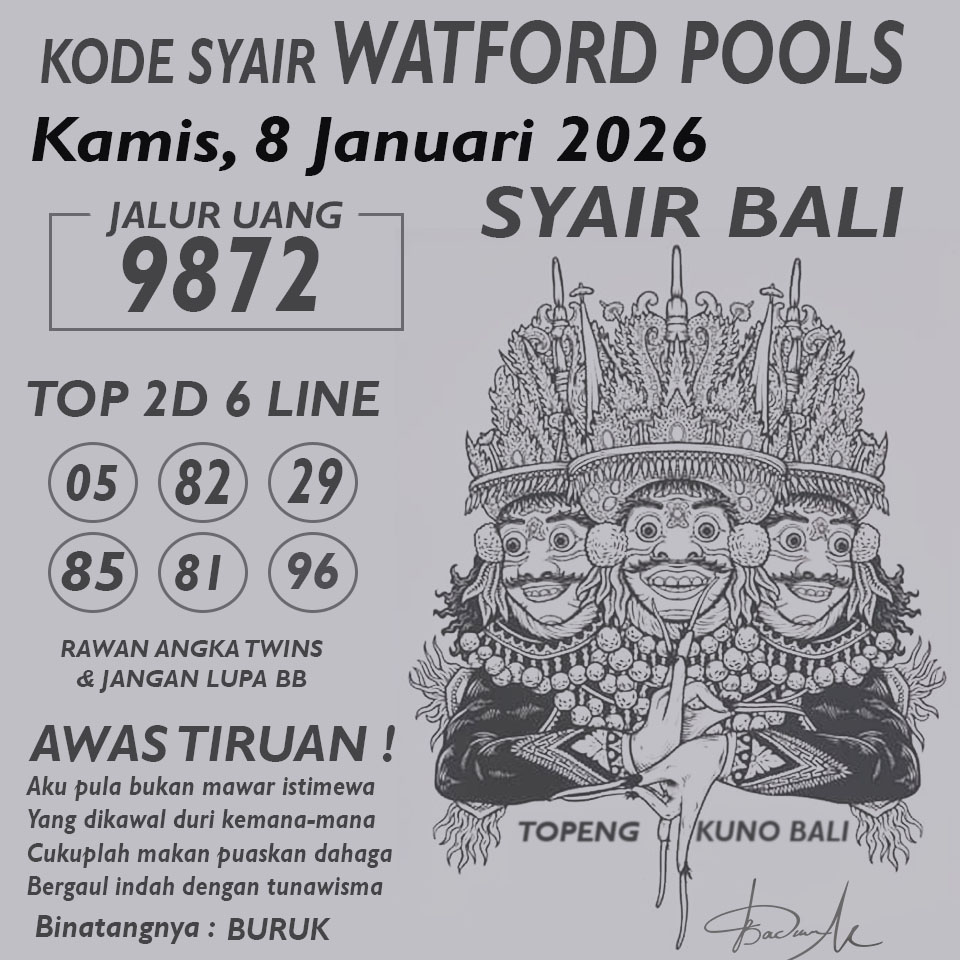 KODE SYAIR WATFORD POOLS
Kamis, 8 Januari 2026
SYAIR BALI
JALUR UANG
9872
TOP 2D 6 LINE
05 82 29
85 81 96
RAWAN ANGKA TWINS
& JANGAN LUPA BB
AWAS TIRUAN !
Aku pula bukan mawar istimewa
Yang dikawal duri kemana-mana
Cukuplah makan puaskan dahaga
Bergaul indah dengan tunawisma
Binatangnya : BURUK
TOPENG KUNO BALI